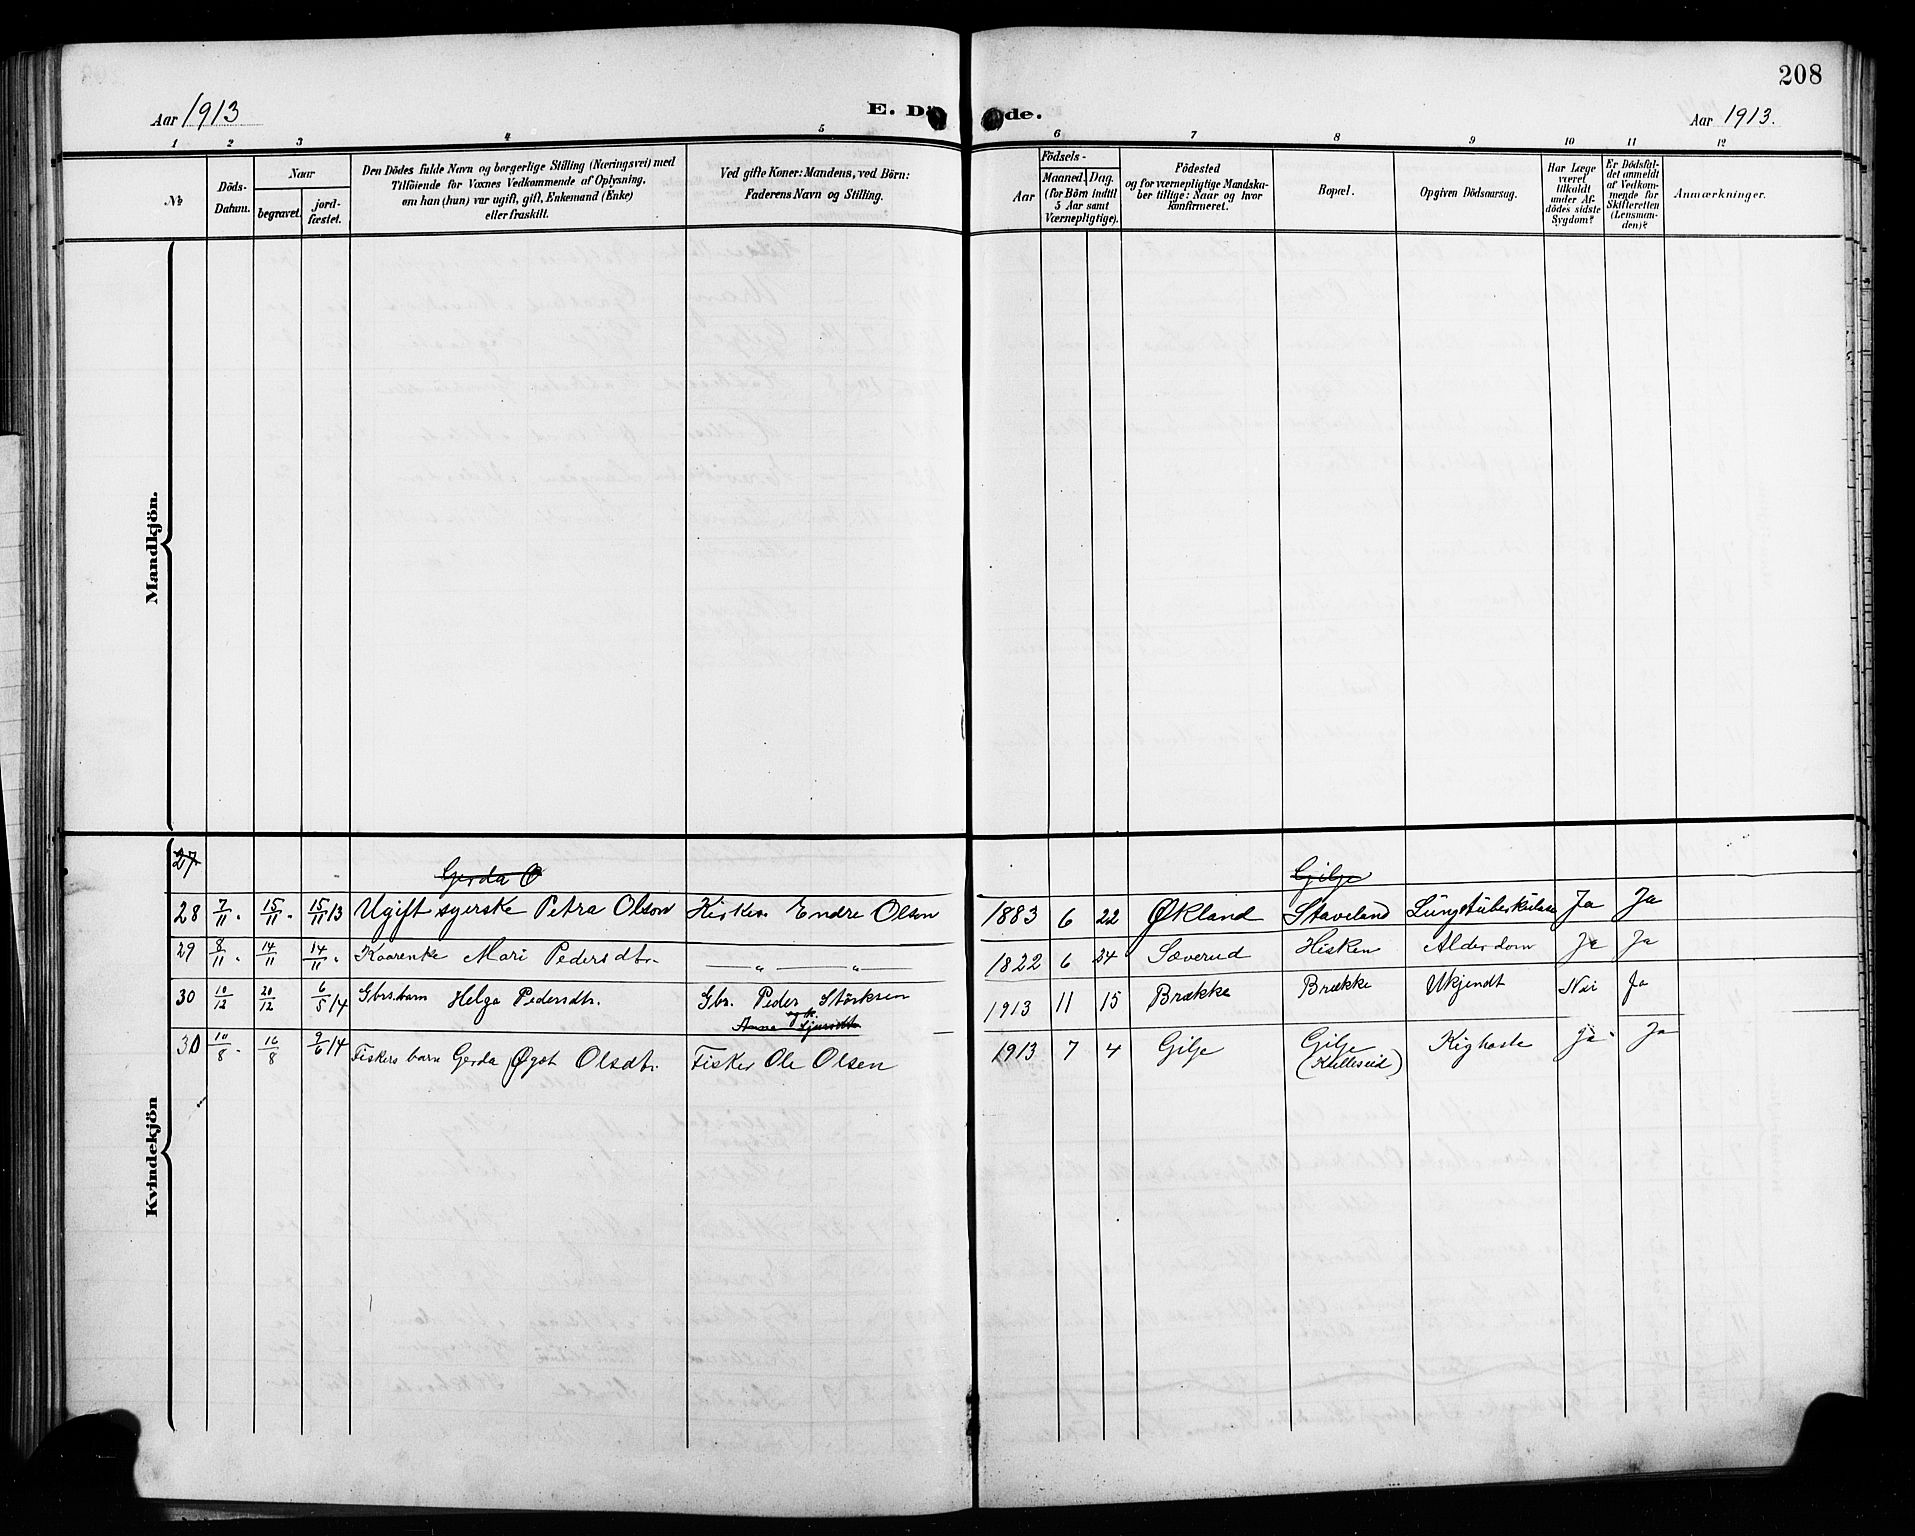 208
Aar 1913
E. Dö de.
Aar 1913.
1 2 3 4 5 6 7 8 9 10 11 12
No
Döds-
Datum.
Naar
begravet.
jord-
fæstet.
Den Dödes fulde Navn og borgerlige Stilling (Næringsvei) med
Tilföiende for Voxnes Vedkommende af Oplysning,
om han (hun) var ugift, gift, Enkemand (Enke)
eller fraskilt.
Ved gifte Koner: Mandens, ved Börn:
Faderens Navn og Stilling.
Födsels-
Aar
Maaned. Dag.
(for Börn indtil
5 Aar samt
Værnepligtige).
Födested
og for værnepligtige Mandska-
ber tillige: Naar og hvor
konfirmeret.
Bopæl.
Opgiven Dödsaarsag.
Har Læge
været
tilkaldt
under Af-
dödes sidste
Sygdom?
Er Dödsfal-
det anmeldt
af Vedkom-
mende for
Skifteretten
(Lensman-
den)?
Anmærkninger.
Mandkjön.
Kvindekjön
27 Gerda O Gilje
28 7/11. 15/11. 15/11 13 Ugift syerske Petra Olson Kirkes. Endre Olson 1883 6 22 Økland Staveland Lungetuberkulose Ja Ja
29 8/11. 14/11 14/11. Kaarenke Mari Pedersdtr. — " — " — 1822 6 24 Sæverud Hisken Alderdom Ja Ja
30 10/12 20/12 6/5 14 Gbrs.barn Helga Pedersdtr. Gbr. Peder Størksen 1913 11 15 Brække Brække Ukjendt Nei Ja
og k.
Anna Sjursdtr
30 10/8. 16/8 9/6 14 Fiskers barn Gerda Øgot Olsdtr. Fisker Ole Olsen 1913 7 4 Gilje Gilje Kighoste Ja Ja
(Kuleseid)